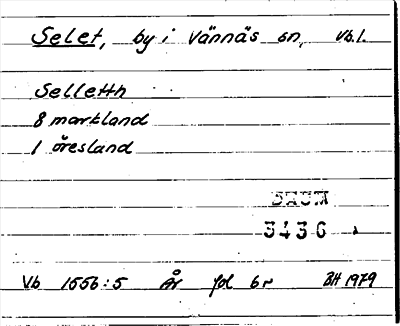 Selet, by i Vännäs sn, Vb.l.
Selletth
8 markland
1 öresland
DAUM
3436
Vb 1556:5 År fol 6r BH 1979